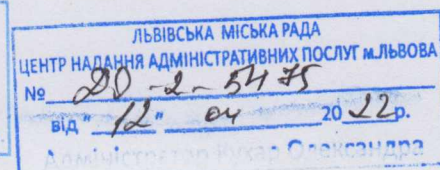 ЛЬВІВСЬКА МІСЬКА РАДА
ЦЕНТР НАДАННЯ АДМІНІСТРАТИВНИХ ПОСЛУГ м.ЛЬВОВА
№ 20-2-5475
від "12" 04 2022р.
Адміністратор Кухар Олександра